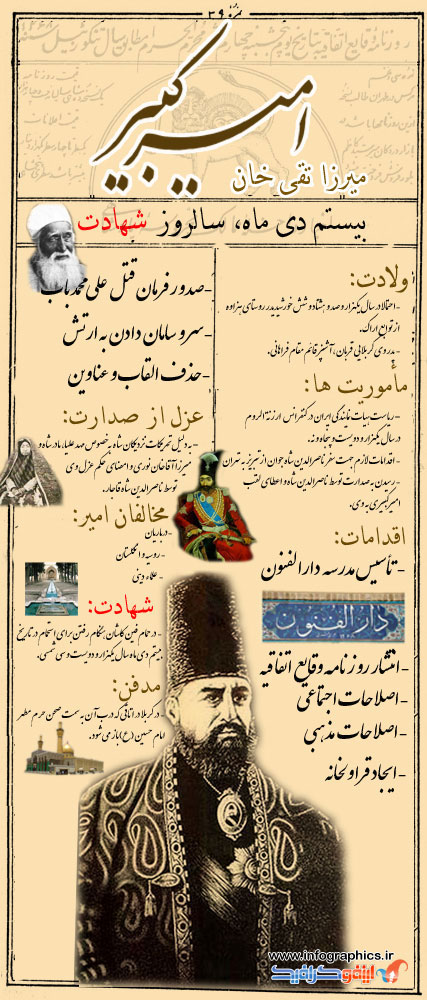 نمره ۳۹
امیرکبیر
میرزا تقی خان
بیستم دی ماه، سالروز شهادت
ولادت:
-احتمالا در سال یکهزار و صد و هشتاد و شش خورشیدی در روستای هزاوه
از توابع اراک.
-پدر وی کربلایی قربان، آشپز قائم مقام فراهانی.
مأموریت ها:
-ریاست هیات نمایندگی ایران در کنفرانس ارزنة الروم
در سال یکهزار و دویست و پنجاه و نه.
-اقدامات لازم جهت سفر ناصرالدین شاه جوان از تبریز به تهران
-رسیدن به صدارت توسط ناصرالدین شاه و اعطای لقب
امیرکبیری به وی.
اقدامات:
-تأسیس مدرسه دارالفنون
دارالفنون
-انتشار روزنامه وقایع اتفاقیه
-اصلاحات اجتماعی
-اصلاحات مذهبی
-ایجاد قراولخانه
-صدور فرمان قتل علی محمد باب
-سر و سامان دادن به ارتش
-حذف القاب و عناوین
عزل از صدارت:
-به دلیل تحریکات نزدیکان شاه به خصوص مهد علیا، مادر شاه و
میرزا آقاخان نوری و امضای حکم عزل وی
توسط ناصرالدین شاه قاجار.
مخالفان امیر:
-درباریان
-روسیه و انگلستان
-علماء دینی
شهادت:
-در حمام فین کاشان هنگام رفتن برای استحمام در تاریخ
بیستم دی ماه سال یکهزار و دویست و سی شمسی.
مدفن:
-در کربلا در اتاقی که درب آن به سمت صحن حرم مطهر
امام حسین (ع) باز می شود.
www.infographics.ir
اینفوگرافیک